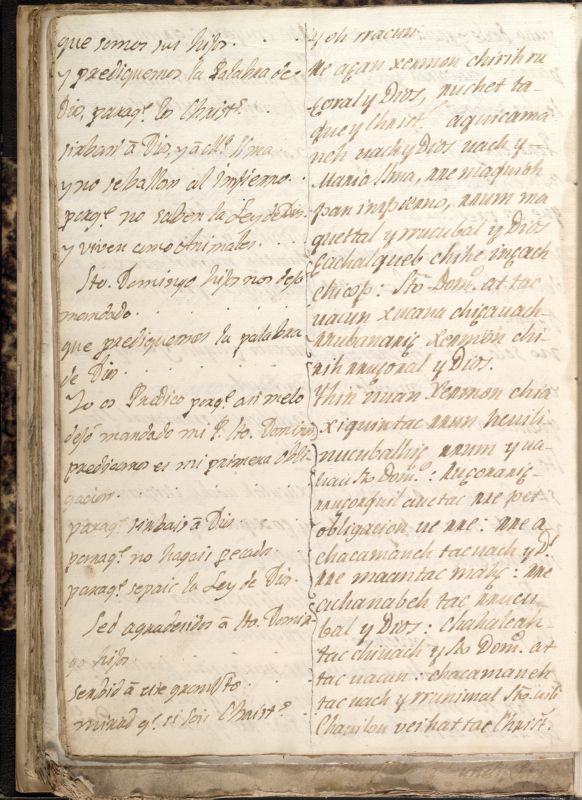 que somos sus hijos.
y prediquemos la Palabra de
Dios, paraq.e los Christ.s
sirbais â Dios, y a Mª. SSma
y no se ballan al Infierno.
porq.e no saben la Ley de Dios.
y viven como Animales.
Sto. Domingo hijos nos dejô
mandado.
que prediquemos la palabra
de Dios.
Yo os Predico porq.e asi me lo
dejô mandado mi P. Sto. Domingo
predicaros es mi primera obli-
gacion.
paraq.e sirbais â Dios
paraq.e no hagais pecado.
paraq.e sepais la Ley de Dios.
Sed agradecidos â Sto. Domin-
go hijos
serbid â este gran Sto.
mirad q.e si sois Christ.s
y oh macun.
re acan xermon chirih ru
coral y Dios, ruchet ta-
que y Christ. aquicama
neh uach y Dios uach y
Maria SSma, rre maquioh
pan infierno, rrum ma
quettal y rrucubal y Dios
chicop: Sto. Dom.o at tac
uacun xucana chicauach
xermon chi-
rih y Dios.
Yhin xermon chi
xiquintac rrum
rrum y ua-
uau Sto Dom.o:
obligacion ue rre: rre a
chacamaneh tac uach y D.s
rre maantac male: rre
achanabeh tac rrucu-
bal y Dios: chahaleah-
tac chiuach y Sto Dom.o at
tac uacun: chacamaneh
tac uach y rrunimal Sto.
uei hat tac Christ.